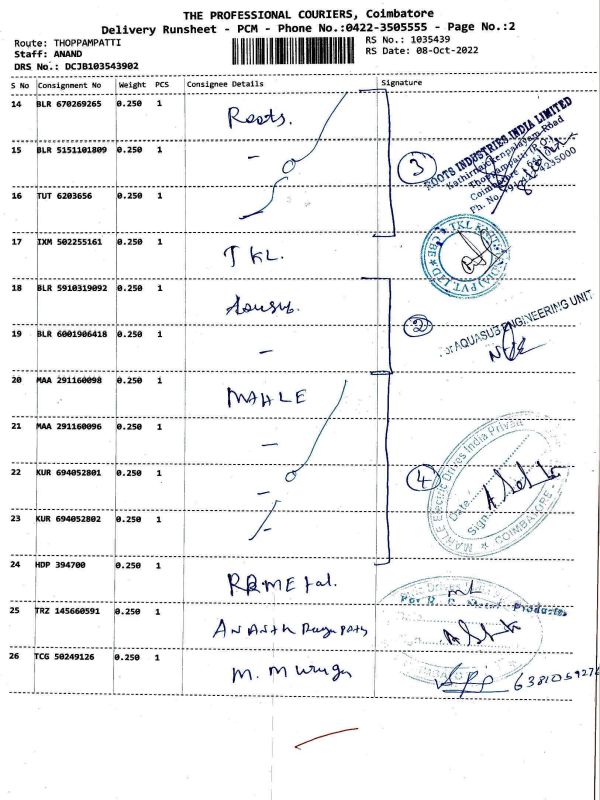 THE PROFESSIONAL COURIERS, Coimbatore
Delivery Runsheet - PCM - Phone No.:0422-3505555 - Page No.:2
Route: THOPPAMPATTI
RS No.: 1035439
Staff: ANAND
RS Date: 08-Oct-2022
DRS No.: DCJB103543902
S No Consignment No Weight PCS Consignee Details Signature
14 BLR 670269265 0.250 1 Roots.
15 BLR 5151101809 0.250 1 -
16 TUT 6203656 0.250 1
3
ROOTS INDUSTRIES INDIA LIMITED
Kathirnaickenpalayam Road
Thoppampatti (P.O)
Ph. No.
17 IXM 502255161 0.250 1 TKL.
18 BLR 5910319092 0.250 1
19 BLR 6001906418 0.250 1 -
2
For AQUASUB ENGINEERING UNIT
20 MAA 291160098 0.250 1 MAHLE
21 MAA 291160096 0.250 1 -
22 KUR 694052801 0.250 1 -
23 KUR 694052802 0.250 1 -
4
MAHLE Electric Drives India Private
Date
Sign
COIMBATORE
24 HDP 394700 0.250 1 RBMetal.
25 TRZ 145660591 0.250 1
26 TCG 50249126 0.250 1 M. Muruga